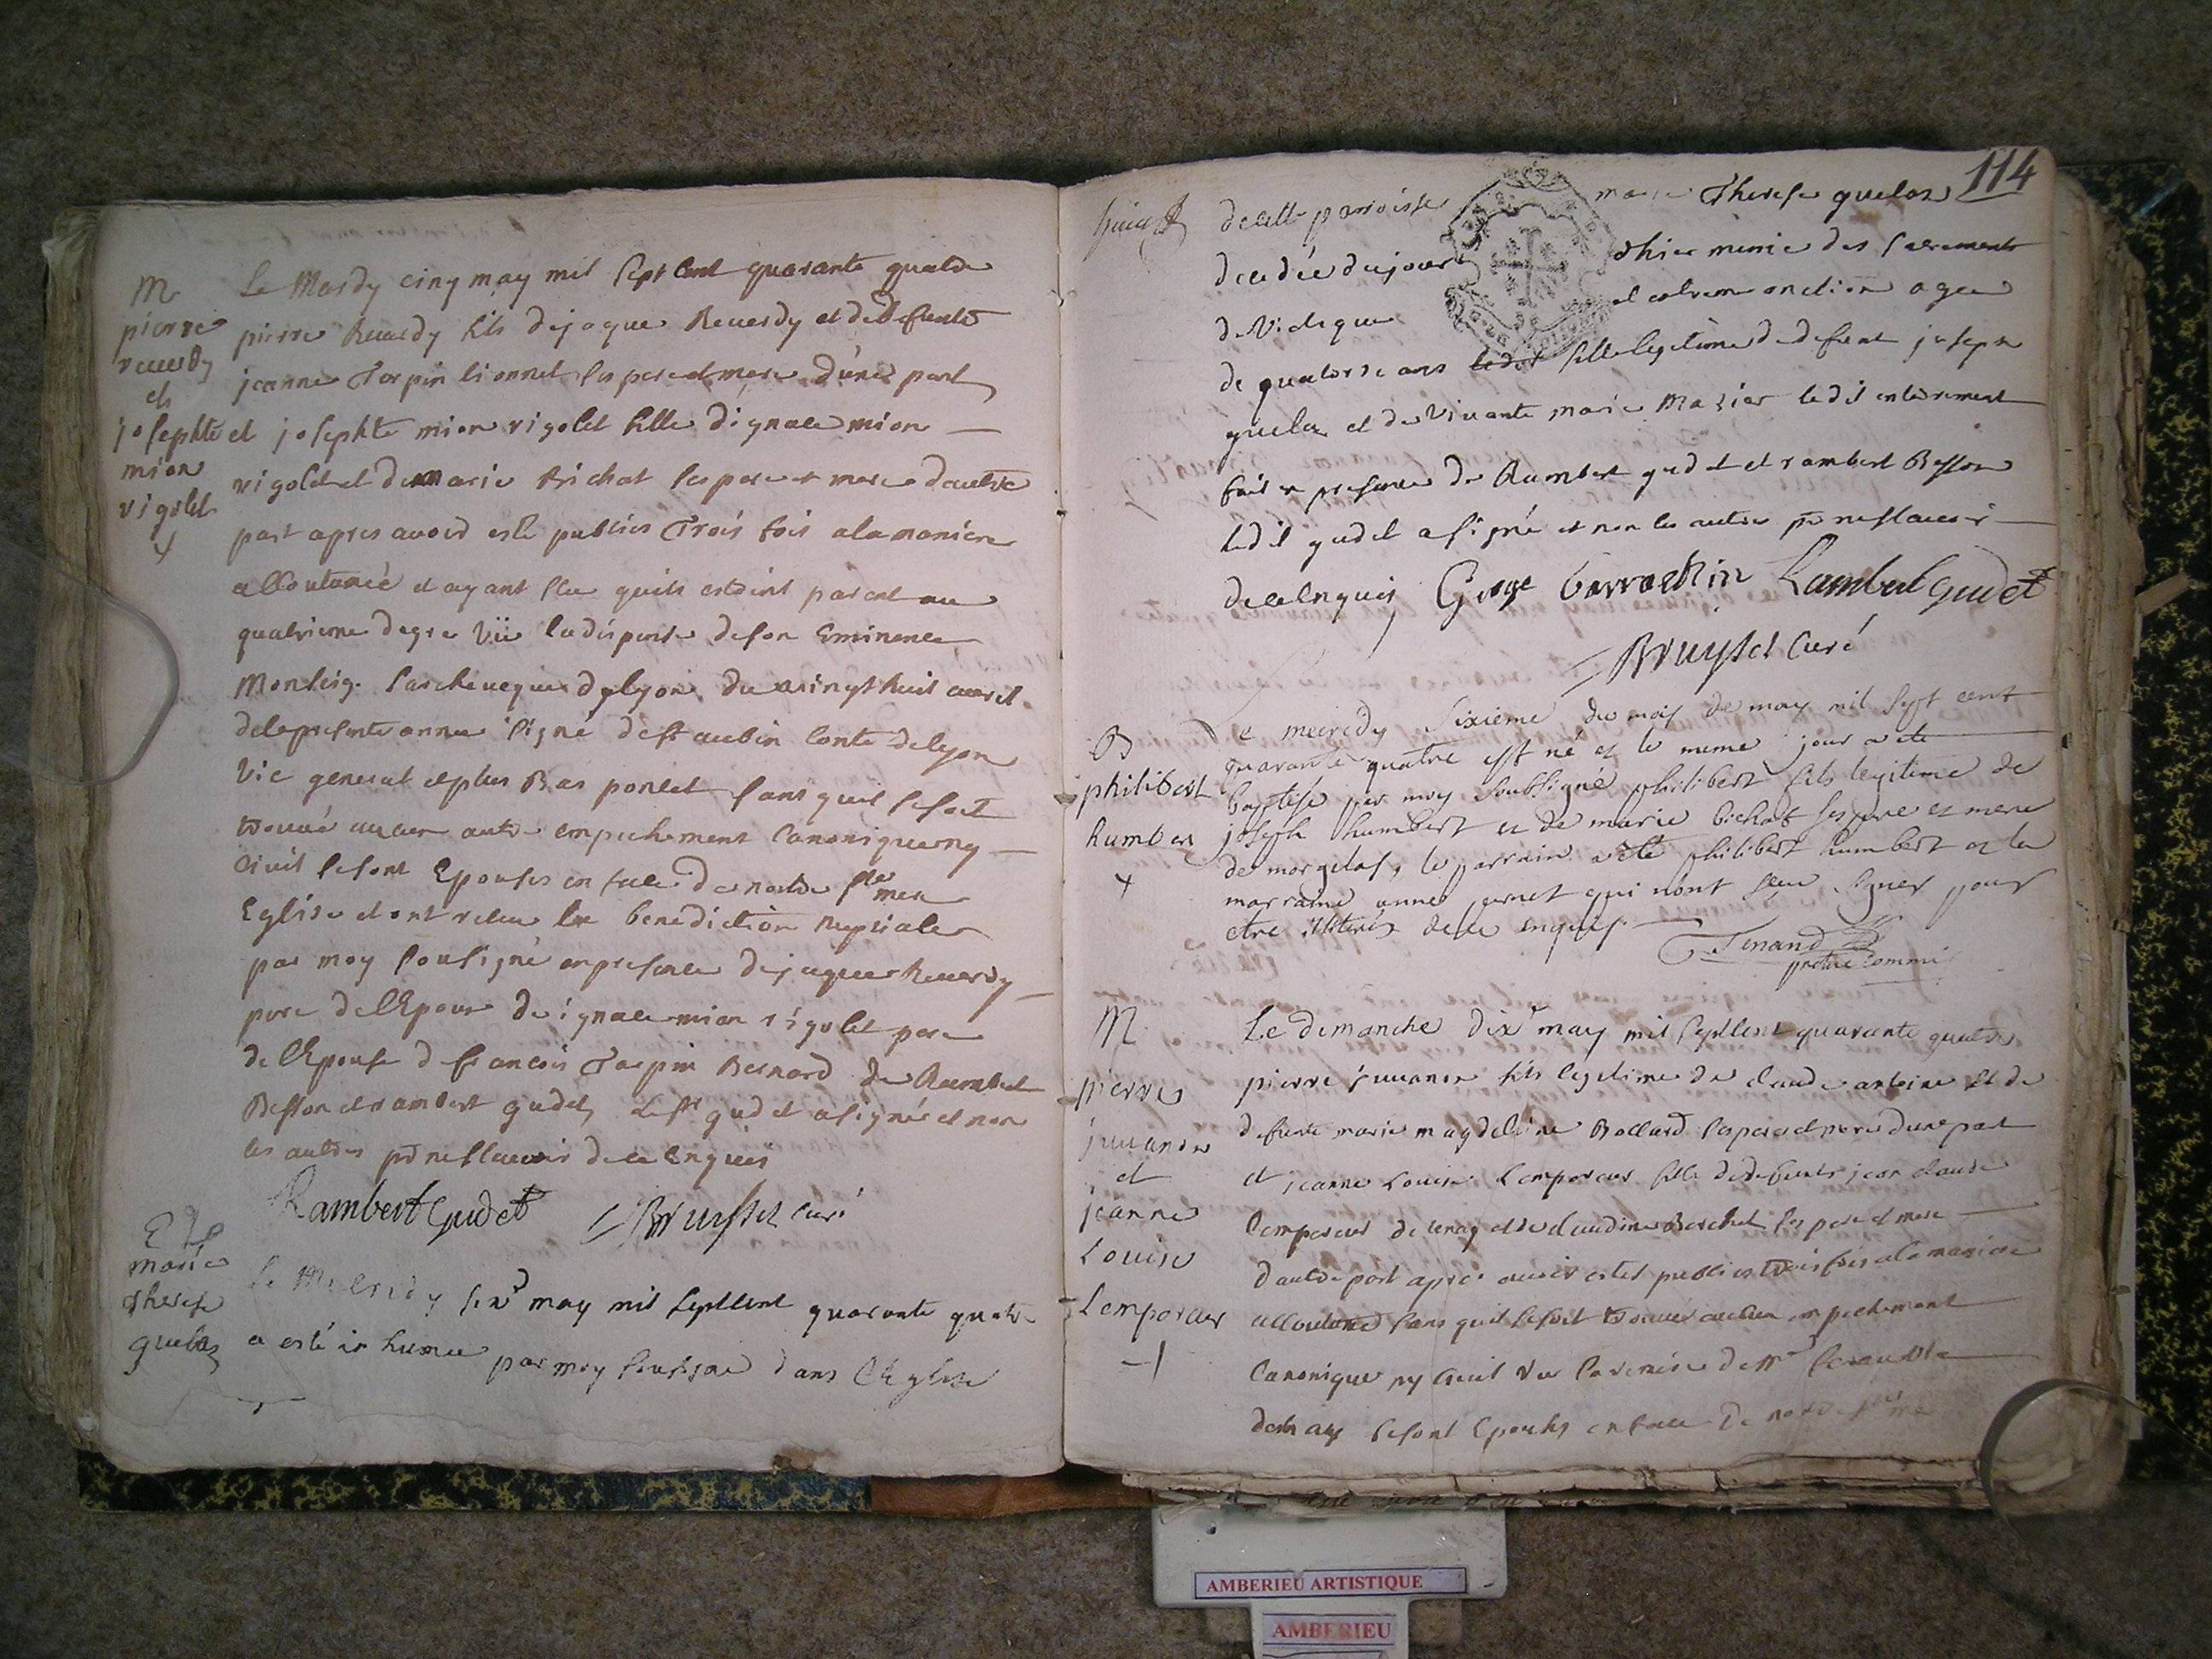 M
pierre
reuerdy
et
josephte
mion
rigolet
Le Mardy cinq may mil sept cent quarante quatre
pierre Reuerdy fils de jaque Reuerdy et de defunte
jeanne Tarpin lionnet ses pere et mere d'une part
et josephte mion rigolet fille d'ignace mion
rigolet et de marie Bichat ses pere et mere d'autre
part apres auoir esté publies Trois fois a la maniere
accoutumée et ayant sceu quils estoint parent au
quatrieme degre vü la dispense de son Eminence
Monseig. larcheueque de lyon du vingt huit auril
de la presente annee signé de st aubin Conte de lyon
Vic general et plus Bas ponset sans quil se soit
trouué aucun autre empechement Canonique ny
Ciuil se sont Epousés en face de nostre ste mere
Eglise et ont receu la benediction nuptiale
par moy sousigné en presence de jaque Reuerdy
pere de l'Epoux de ignace mion rigolet pere
de l'Epouse de francois Tarpin Bernard de Rambert
Besson et rambert gudet, Le st gudet a signé et non
les autres pr ne scauoir de ce enquis
Rambert Gudet Bruyset Curé
E
marie
therese
quelas
Le Mecredy six may mil septcent quarante quatre
a esté inhumée par moy soussigné dans l'Eglise
114
de cette parroisse marie Therese quelas
decedée du jour d'hier munie des sacrements
de Viatique et extreme onction agee
de quatorze ans fille legitime de defunt joseph
quelas et de Viuante marie Mazier ledit enterrement
fait en presence de Rambert gudet et rambert Besson
ledit gudet a signé et non les autres pr ne scauoir
de ce enquis George barrachin Rambert Gudet
Bruyset Curé
B
philibert
humbert
Le mecredy sixieme du mois de may mil sept cent
quarante quatre est né et le meme jour a ete
baptise par moy soubsigné philibert fils legitime de
joseph humbert et de marie bichat ses pere et mere
de morgelas, le parrain a été philibert humbert et la
marraine anne jarnet qui nont sceu signer pour
etre illiterés de ce enquis.
Tenand
pretre commis
M
pierre
juuanon
et
jeanne
Louise
Lempereur
Le dimanche dix may mil septcent quarante quatre
pierre juuanon fils legitime de claude antoine et de
defunte marie magdeleine Bollard ses pere et mere d'une part
et jeanne Louise Lempereur fille de defunts jean claude
Lempereur de tenay et de claudine Berchet ses pere et mere
d'autre part apres auoir estes publies trois fois a la maniere
accoutumé sans quil se soit trouué aucun empechement
Canonique ny Ciuil Vu la remise de mre
de tenay se sont Epousés en face de nostre ste mere
AMBERIEU ARTISTIQUE
AMBERIEU